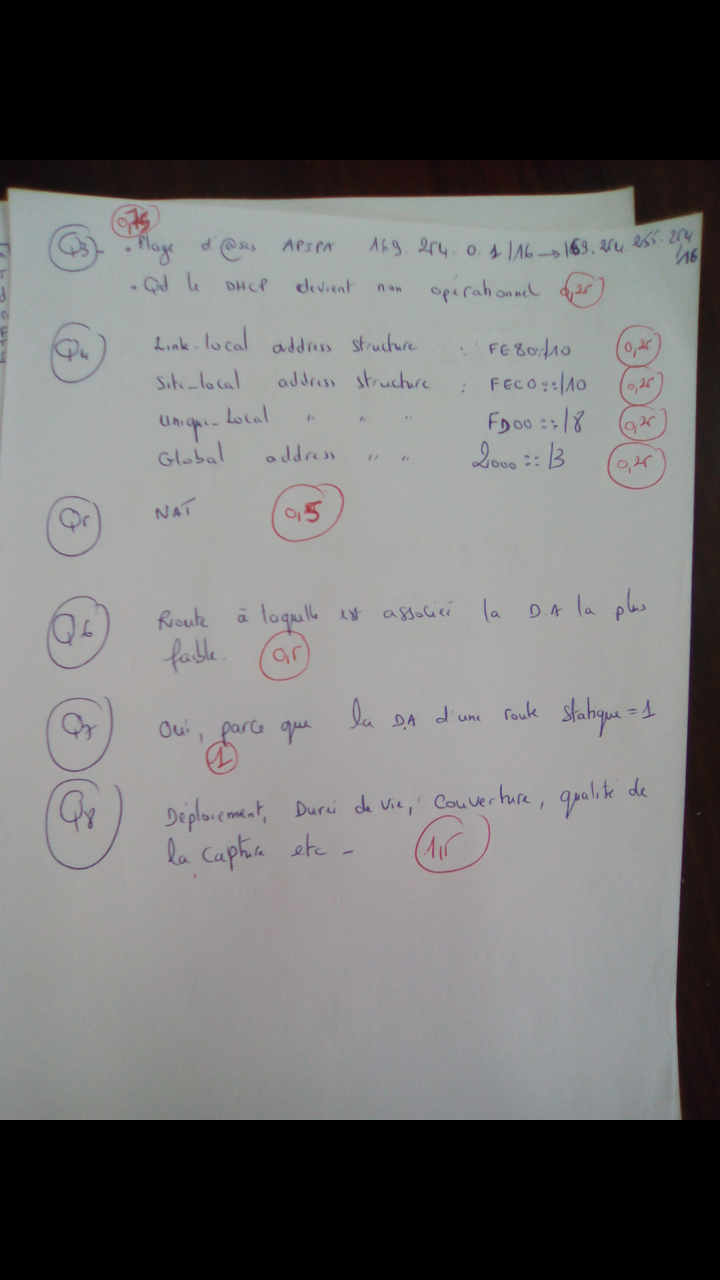 0,75
Q3 - • Plage d'@ses APIPA 169.254.0.1/16 → 169.254.255.254 /16
• Qd le DHCP devient non opérationnel 0,25
Q4 Link-local address structure : FE80::/10 0,25
Site-local address structure : FEC0::/10 0,25
Unique-Local " " " FD00::/8 0,25
Global address " " 2000::/3 0,25
Q5 NAT 0,5
Q6 Route à laquelle est associé la D.A la plus
faible. 0,5
Q7 Oui, parce que la D.A d'une route statique = 1
1
Q8 Déploiement, Durée de vie, Couverture, qualité de
la capture etc - 1,5